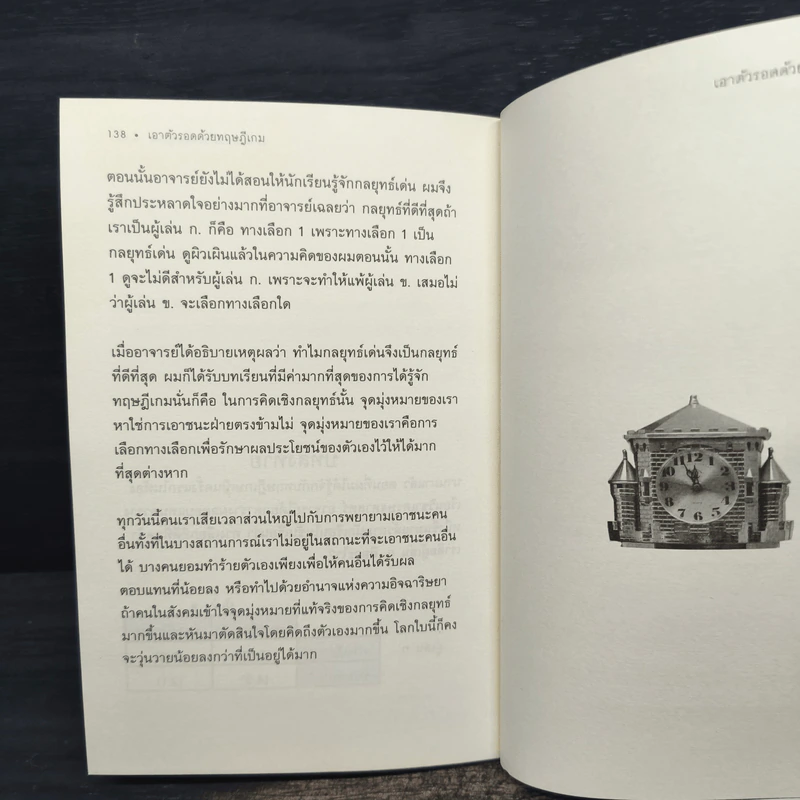 138 • เอาตัวรอดด้วยทฤษฎีเกม
ตอนนั้นอาจารย์ยังไม่ได้สอนให้นักเรียนรู้จักกลยุทธ์เด่น ผมจึง
รู้สึกประหลาดใจอย่างมากที่อาจารย์เฉลยว่า กลยุทธ์ที่ดีที่สุดถ้า
เราเป็นผู้เล่น ก. ก็คือ ทางเลือก 1 เพราะทางเลือก 1 เป็น
กลยุทธ์เด่น ดูผิวเผินแล้วในความคิดของผมตอนนั้น ทางเลือก
1 ดูจะไม่ดีสำหรับผู้เล่น ก. เพราะจะทำให้แพ้ผู้เล่น ข. เสมอไม่
ว่าผู้เล่น ข. จะเลือกทางเลือกใด
เมื่ออาจารย์ได้อธิบายเหตุผลว่า ทำไมกลยุทธ์เด่นจึงเป็นกลยุทธ์
ที่ดีที่สุด ผมก็ได้รับบทเรียนที่มีค่ามากที่สุดของการได้รู้จัก
ทฤษฎีเกมนั่นก็คือ ในการคิดเชิงกลยุทธ์นั้น จุดมุ่งหมายของเรา
หาใช่การเอาชนะฝ่ายตรงข้ามไม่ จุดมุ่งหมายของเราคือการ
เลือกทางเลือกเพื่อรักษาผลประโยชน์ของตัวเองไว้ให้ได้มาก
ที่สุดต่างหาก
ทุกวันนี้คนเราเสียเวลาส่วนใหญ่ไปกับการพยายามเอาชนะคน
อื่นทั้งที่ในบางสถานการณ์เราไม่อยู่ในสถานะที่จะเอาชนะคนอื่น
ได้ บางคนยอมทำร้ายตัวเองเพียงเพื่อให้คนอื่นได้รับผล
ตอบแทนที่น้อยลง หรือทำไปด้วยอำนาจแห่งความอิจฉาริษยา
ถ้าคนในสังคมเข้าใจจุดมุ่งหมายที่แท้จริงของการคิดเชิงกลยุทธ์
มากขึ้นและหันมาตัดสินใจโดยคิดถึงตัวเองมากขึ้น โลกใบนี้ก็คง
จะวุ่นวายน้อยลงกว่าที่เป็นอยู่ได้มาก
เอาตัวรอดด้วย
12
1
2
3
4
5
6
7
8
9
10
11